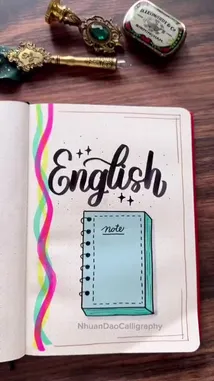 English
note
NhuanDaoCalligraphy